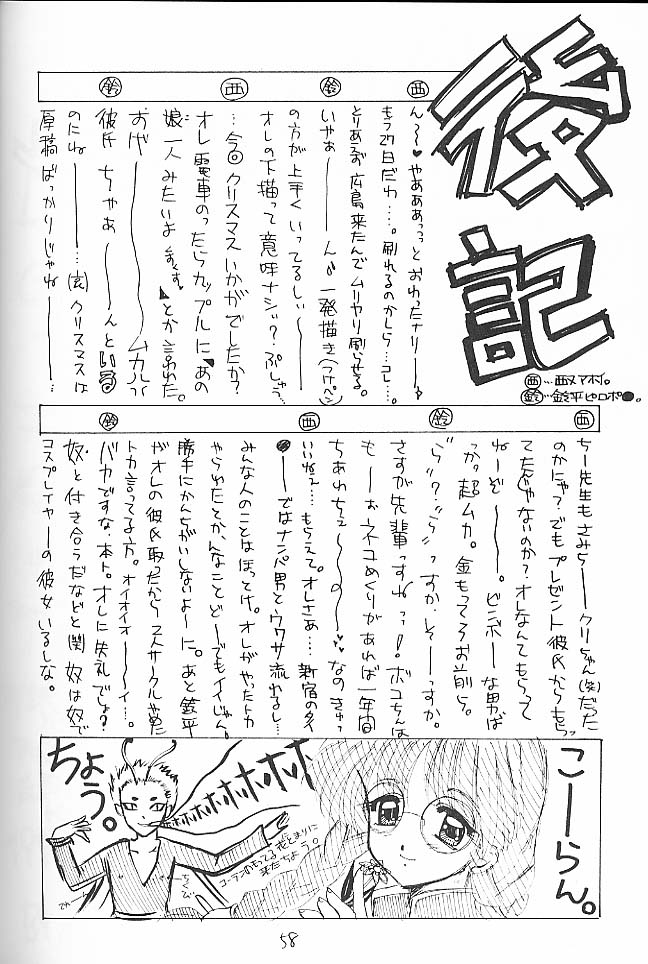 後記
西…西メアホイ。
鈴…鈴平ヒロポ●。
西
鈴
西
鈴
ん〜♥やあああっっとおわったナリ——
もう27日だわ…。刷れるのかしら…コレ…。
とりあえず広島来たんでムリヤリ刷らせる。
いやぁ——ん♪一発描き(つけペン)
の方が上手くいってるしぃ———
オレの下描って意味ナシ?ぷしゅう…
…今回クリスマスいかがでしたか?
オレ電車のったらカップルに「あの
娘一人みたいよ」とか言われた。
おゃ———ムカルっ
彼氏ちゃぁ——んといる
のにね———…(玄)クリスマスは
原稿ばっかりじゃね———…
西
鈴
西
鈴
ちー先生もさみぅ——クリちゃん(笑)だった
のかにゃ?でもプレゼント彼氏からもらっ
てたんじゃないのか?オレなんてもらって
ねーぞ———。ビンボーな男ば
っか。超ムカ。金もってろお前ら。
"ら"?"ら"っすか。そーっすか。
さすが先輩っすねっっ!ボコちんは
もーぉネコめくりがあれば一年間
ちあわちぇ〜〜の〜♥なのきゅっ
いいねえ…。もらえて。オレさぁ…。新宿のタイ
●ーではナンパ男とウワサ流れるし…
みんな人のことほっとけ。オレがやったトカ
やられたとか、んなことど——でもイイじゃん。
勝手にかんちがいしないよーに。あと鈴平
がオレの彼氏取ったから2人サークルやめた
トカ言ってる方。オイオイオ———イ…。
バカですな。本ト。オレに失礼でしょ?
奴と付き合うだなどと関 奴は奴で
コスプレイヤーの彼女いるしな。
こーらん。
ちょう。
ホホホホホホホホ
コーランのもってる花にとまりに
来たちょう。
ちくび
58